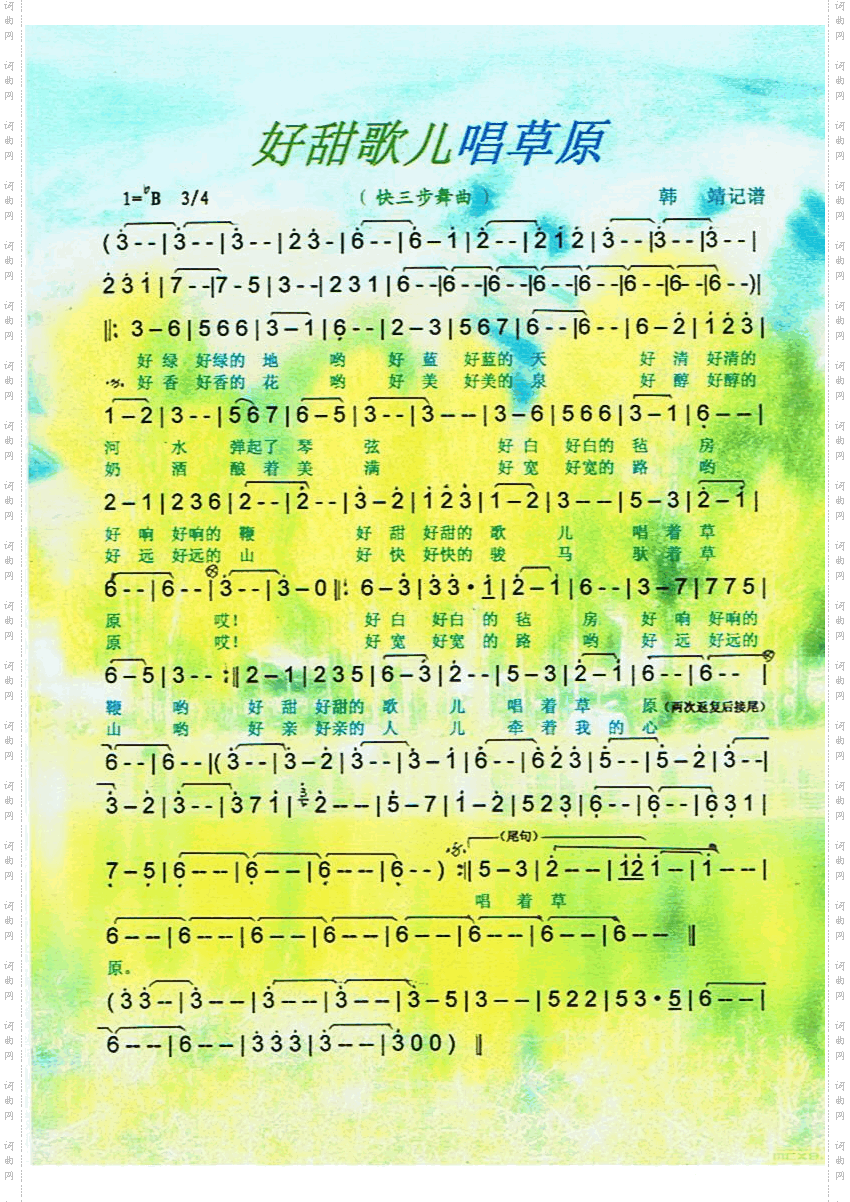 好甜歌儿唱草原
1=♭B 3/4 （快三步舞曲） 韩 靖记谱
(3̇ - - | 3̇ - - | 3̇ - - | 2̇ 3̇ - | 6̇ - - | 6 – i̇ | 2̇ - - | 2̇ 1̇ 2̇ | 3̇ - - | 3̇ - - | 3̇ - - |
2̇ 3̇ 1̇ | 7 - - | 7 - 5 | 3 - - | 2 3 1 | 6 - - | 6 - - | 6 - - | 6 - - | 6 - - | 6 - - | 6 - - | 6 - - )|
‖: 3 – 6 | 5 6 6 | 3 – 1 | 6̣ - - | 2 – 3 | 5 6 7 | 6 - - | 6 - - | 6 – 2̇ | 1̇ 2̇ 3̇ |
好 绿 好绿的 地 哟 好 蓝 好蓝的 天 好 清 好清的
好 香 好香的 花 哟 好 美 好美的 泉 好 醇 好醇的
1̇ – 2̇ | 3 - - | 5 6 7 | 6 – 5 | 3 - - | 3 – – | 3 – 6 | 5 6 6 | 3 – 1 | 6̣ – – |
河 水 弹起了 琴 弦 好 白 好白的 毡 房
奶 酒 酿 着 美 满 好 宽 好宽的 路 哟
2 – 1 | 2 3 6 | 2̇ - - | 2̇ - - | 3̇ – 2̇ | 1̇ 2̇ 3̇ | 1̇ – 2̇ | 3 – – | 5 – 3 | 2̇ – 1̇ |
好 响 好响的 鞭 好 甜 好甜的 歌 儿 唱 着 草
好 远 好远的 山 好 快 好快的 骏 马 驮 着 草
6 - - | 6 - - | 3̇ - - | 3̇ – 0 ‖: 6 – 3̇ | 3̇ 3̇ · 1̇ | 2̇ – 1̇ | 6 - - | 3 – 7 | 7 7 5 |
原 哎！ 好 白 好白 的 毡 房 好 响 好响的
原 哎！ 好 宽 好宽 的 路 哟 好 远 好远的
6 – 5 | 3 - - :‖ 2 – 1 | 2 3 5 | 6 – 3̇ | 2̇ - - | 5 – 3 | 2̇ – 1̇ | 6 - - | 6 -- |
鞭 哟 好 甜 好甜的 歌 儿 唱 着 草 原（两次返复后接尾）
山 哟 好 亲 好亲的 人 儿 牵 着 我 的 心
6 - - | 6 - - |( 3̇ - - | 3̇ – 2̇ | 3̇ - - | 3̇ – 1̇ | 6 - - | 6 2̇ 3̇ | 5̇ - - | 5̇ – 2̇ | 3̇ - - |
3̇ – 2̇ | 3̇ - - | 3̇ 7 1̇ | 3̇ 2̇ – – | 5 – 7 | 1̇ – 2̇ | 5 2 3 | 6̣ - - | 6̣ - - | 6̣ 3 1 |
7̣ – 5̣ | 6̣ – – | 6̣ – – | 6̣ – – | 6̣ - - ) :‖ （尾句） 5 – 3 | 2̇ – – | 1̇2̇ 1̇ – | 1̇ – – |
唱 着 草
6 – – | 6 – – | 6 – – | 6 – – | 6 – – | 6 – – | 6 – – | 6 – – ‖
原。
( 3̇ 3̇ – | 3̇ – – | 3̇ – – | 3̇ – – | 3̇ – 5 | 3 – – | 5 2 2 | 5 3 · 5 | 6 – – |
6 – – | 6 – – | 3̇ 3̇ 3̇ | 3̇ – – | 3̇ 0 0 ) ‖
词曲网